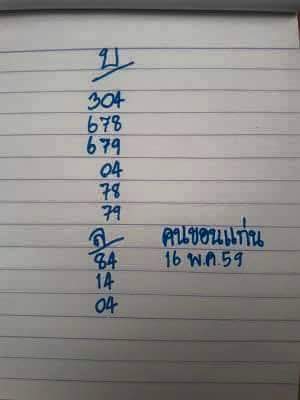 บ
304
678
679
04
78
79
ล
84
14
04
คนขอนแก่น
16 พ.ค.59